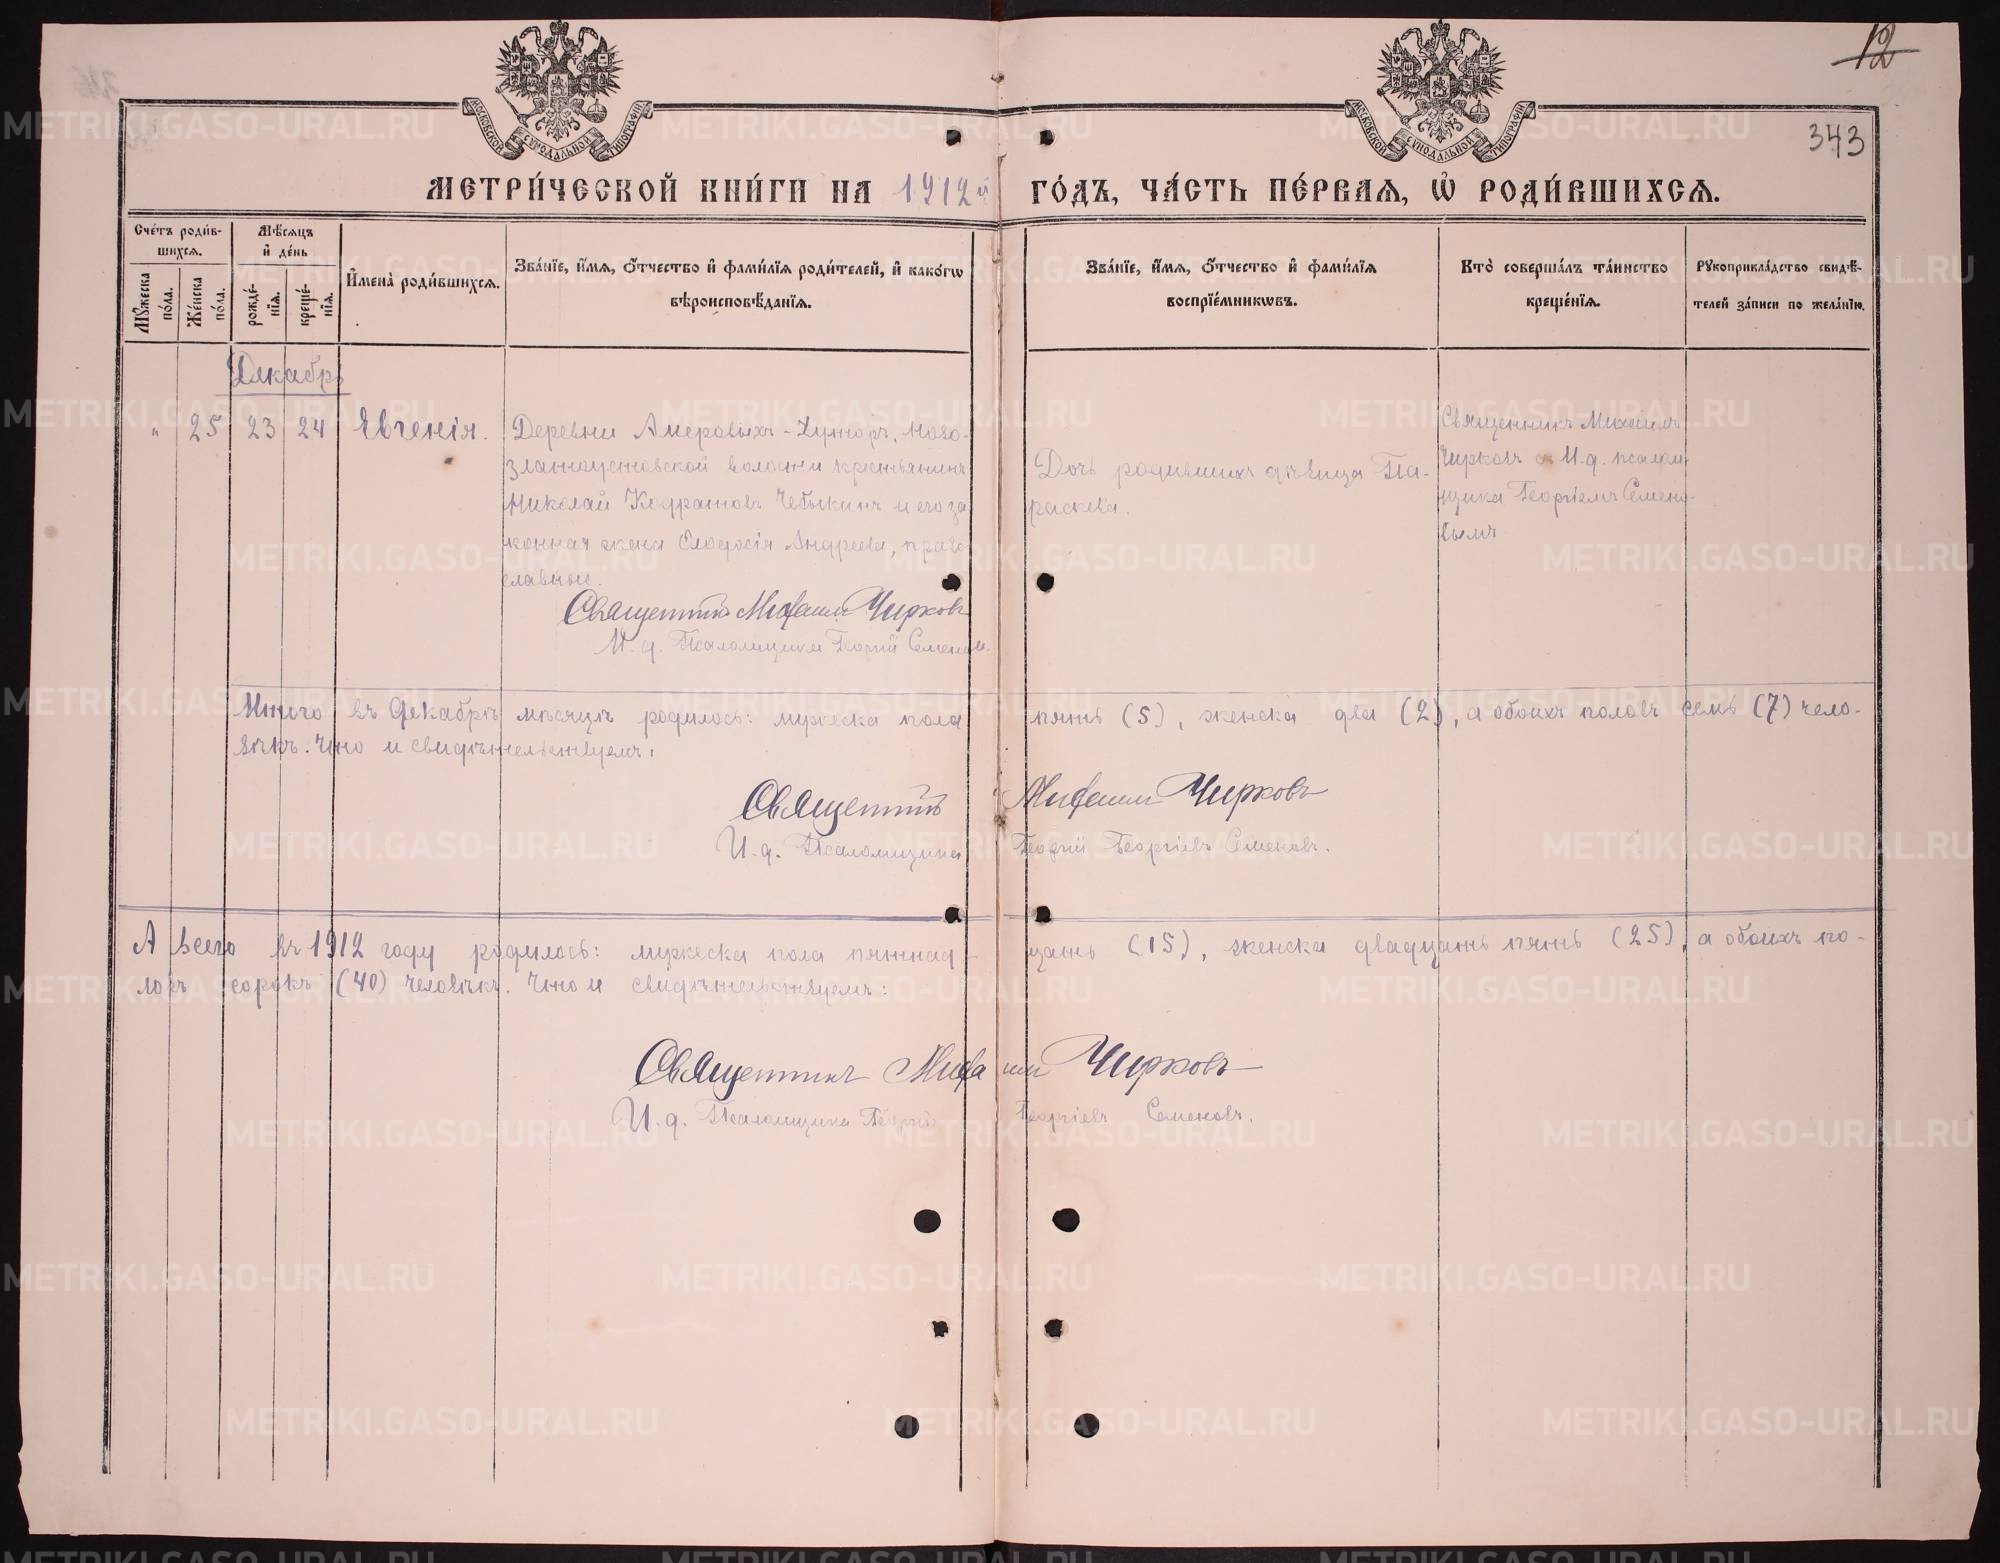 12
343
МОСКОВСКОЙ СУНОДАЛЬНОЙ ТИПОГРАФІИ
МОСКОВСКОЙ СУНОДАЛЬНОЙ ТИПОГРАФІИ
МЕТРИ́ЧЕСКОЙ КНИ́ГИ НА 1912й ГО́ДЪ, ЧА́СТЬ ПЕ́РВАѦ, Ѡ҆ РОДИ́ВШИХСѦ.
Сче́тъ роди́в-
шихсѧ.
Мꙋжеска по́ла.
Же́нска по́ла.
Мѣ́сѧцъ
и҆ де́нь
рожде́-
нїѧ.
креще́-
нїѧ.
И҆мена̀ роди́вшихсѧ.
Зва́нїе, и҆́мѧ, ѻ҆́тчество и҆ фами́лїѧ роди́телей, и҆ како́гѡ
вѣроисповѣ́данїѧ.
Зва́нїе, и҆́мѧ, ѻ҆́тчество и҆ фами́лїѧ
воспрїе́мникѡвъ.
Кто̀ соверша́лъ та́инство
креще́нїѧ.
Рꙋкоприкла́дство свидѣ́-
телей за́писи по жела́нїю.
Декабрь
" 25 23 24 Евгенія.
Деревни Амеровыхъ-Хуторъ, Ново-
златоустовской волости крестьянинъ
Николай Кодратовъ Чебыкинъ и его за-
конная жена Ѳеодосія Андреева, право-
славные.
Дочь родившихъ дѣвица Па-
раскева.
Священникъ Михаилъ
Чирковъ с И.д. псалом-
щика Георгіемъ Семено-
вымъ
Священникъ Михаилъ Чирковъ
И.д. Псаломщика Георгій Семенов.
Итого въ Декабрѣ мѣсяцѣ родилось: мужеска пола пять (5), женска два (2), а обоихъ половъ семь (7) чело-
вѣкъ. Что и свидѣтельствуемъ:
Священникъ Михаилъ Чирковъ
И.д. Псаломщика Георгій Георгіевъ Семеновъ.
А всего въ 1912 году родилось: мужеска пола пятнад-
цать (15), женска двадцать пять (25), а обоихъ по-
ловъ сорокъ (40) человѣкъ. Что и свидѣтельствуемъ:
Священникъ Михаилъ Чирковъ
И.д. Псаломщика Георгій Георгіевъ Семеновъ.
METRIKI.GASO-URAL.RU